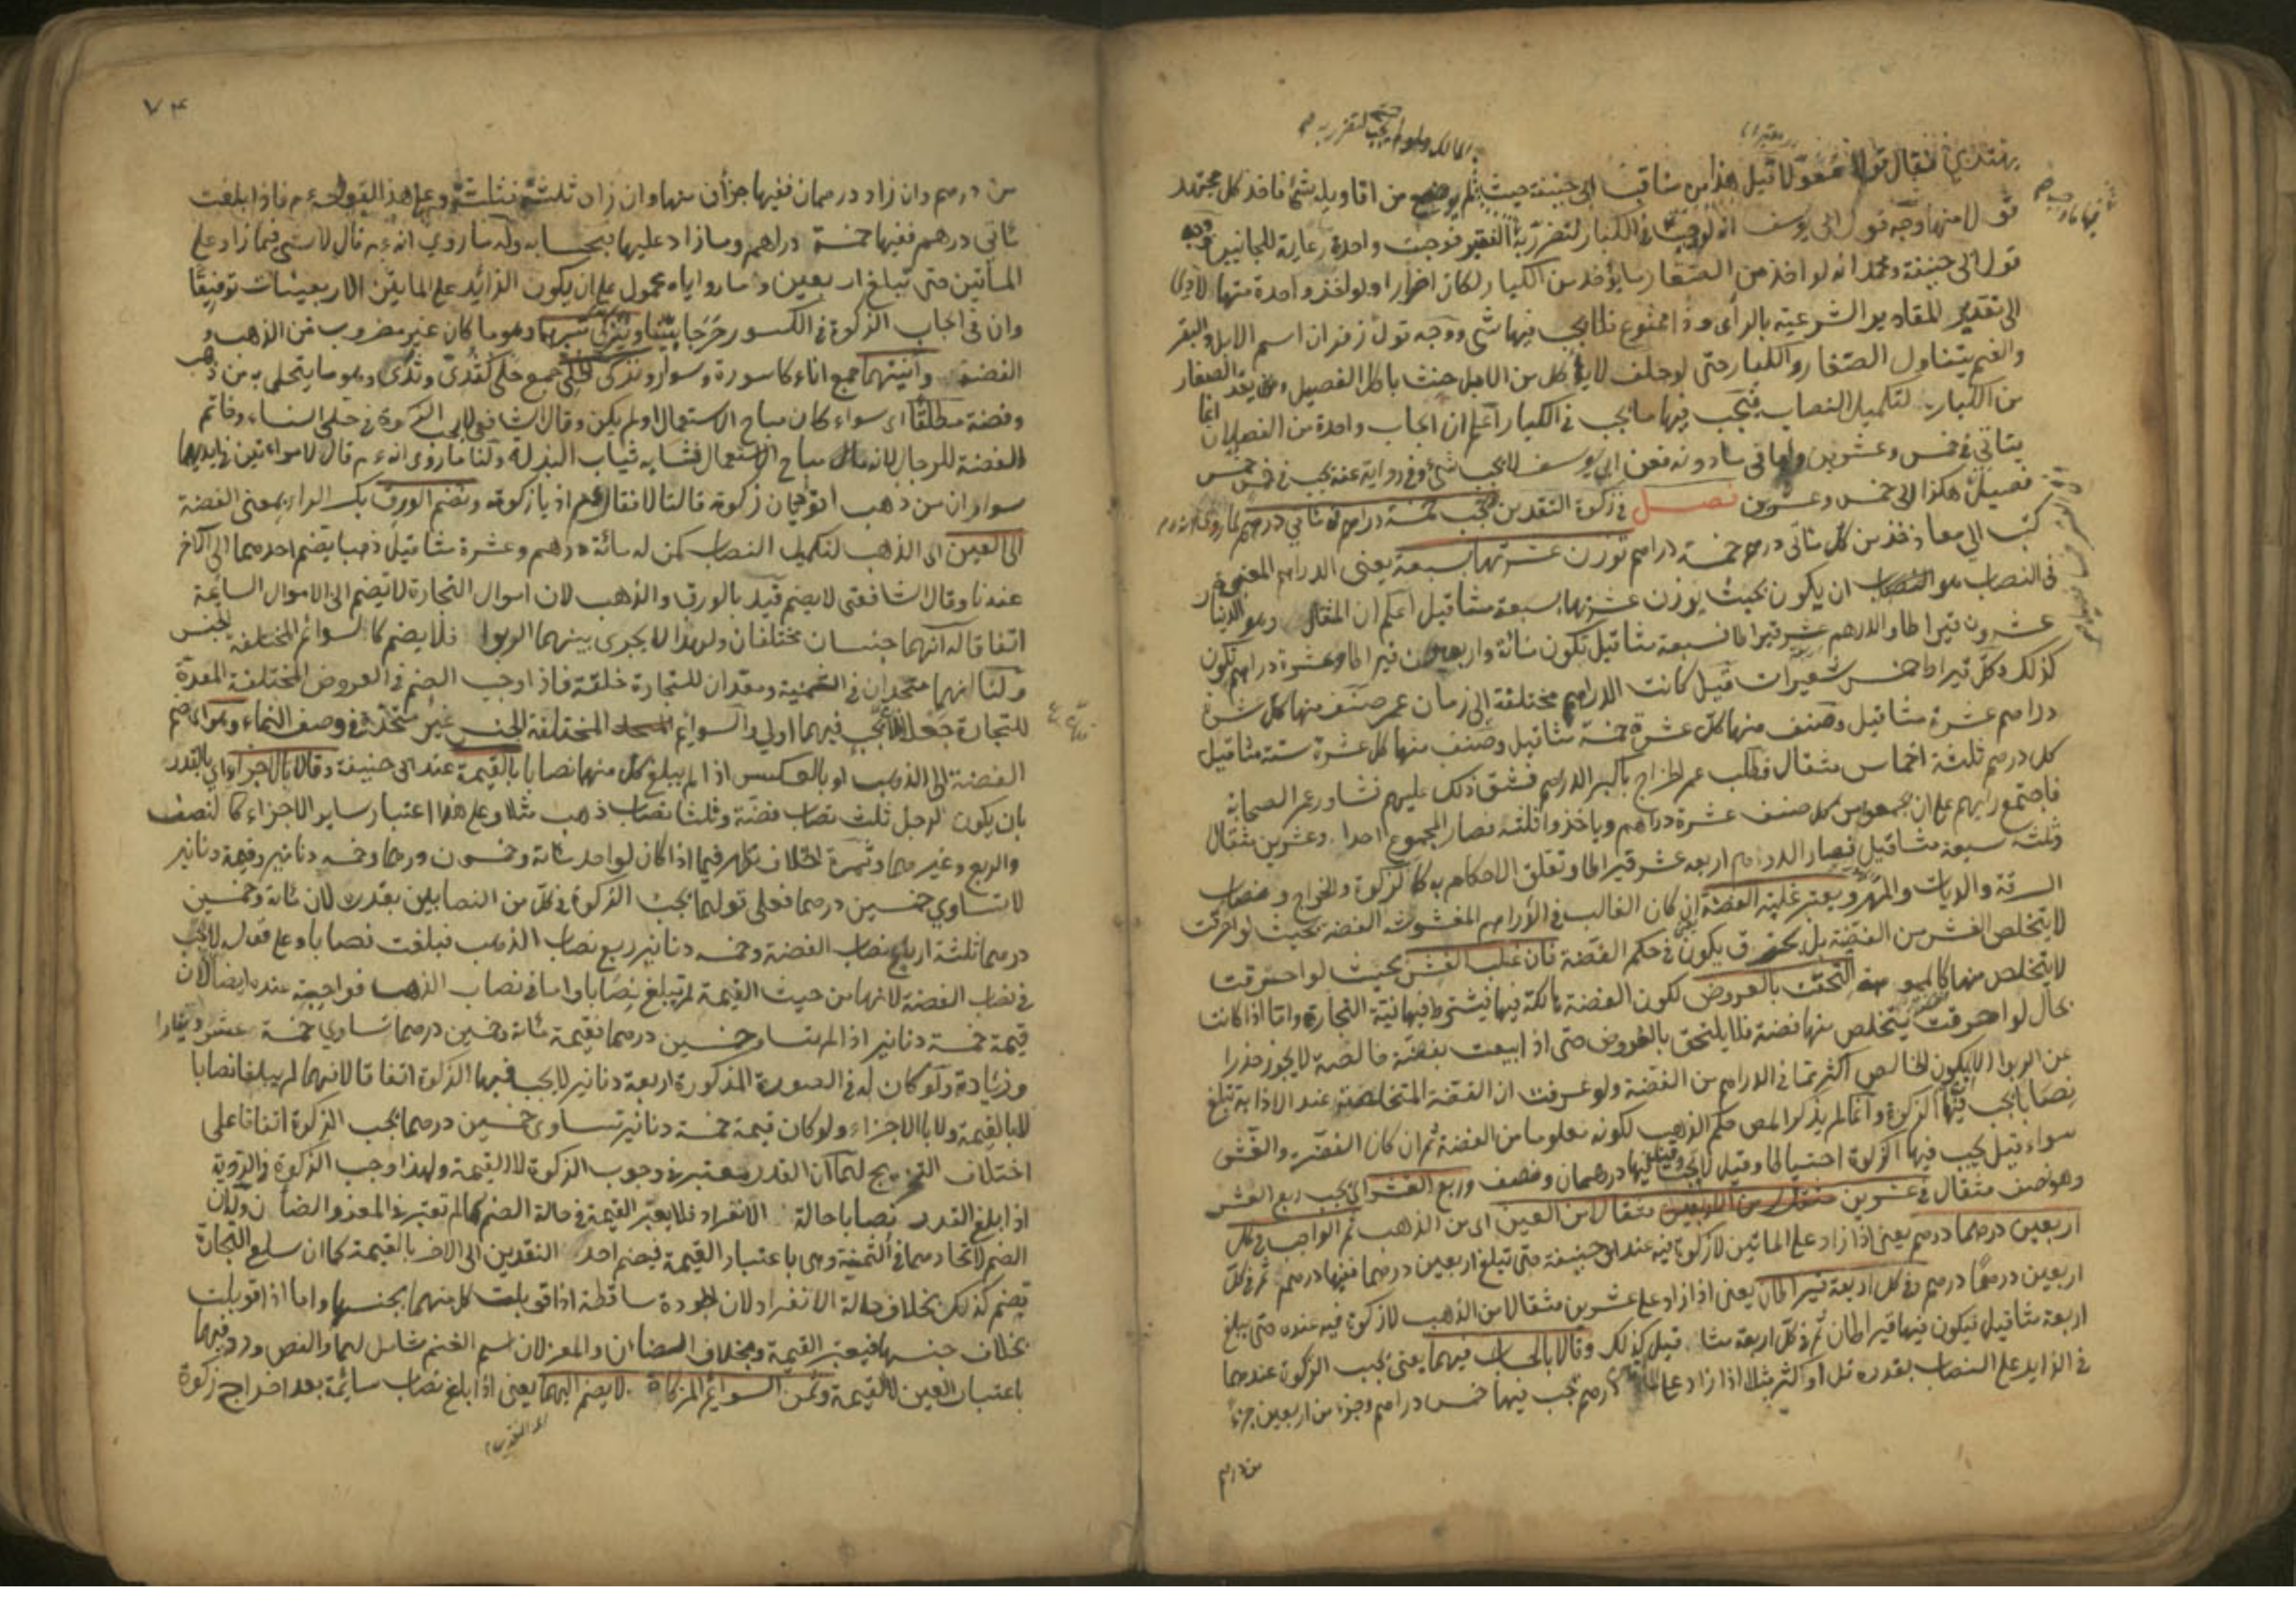 يهتدى فقال قولا معولا قيل هذا من مناقب ابى حنيفة حيث لم يوضع من اقاويله شئ فاخذ كل مجتهد
قولا منها وجه قول ابى يوسف انه لو وجب في الكبار لتضرر به الفقير فوجبت واحدة رعاية للجانبين وجه
قول ابى حنيفة ومحمد انه لو اخذ من الصغار ما يؤخذ من الكبار لكان اضرارا ولو اخذ واحدة منها لادى
الى تقدير المقادير الشرعية بالرأى وذا ممنوع فلا يجب فيها شئ ووجه قول زفر ان اسم الابل والبقر
والغنم يتناول الصغار والكبار حتى لو حلف لا يأكل من الابل حنث باكل الفصيل ولان يعد الصغار
من الكبار لتكميل النصاب فيجب فيها ما يجب في الكبار اعلم ان ايجاب واحدة من الفصلان انما
يتاتي في خمس وعشرين واما في ما دونه فعن ابى يوسف لا يجب شئ وفي رواية عنه يجب في خمس خمس
فصيل هكذا الى خمس وعشرين فصل في زكوة النقدين تجب خمسة دراهم في مأتي درهم لما روى انه عم
كتب الى معاذ خذ من كل مأتى درهم خمسة دراهم توزن عشرتها بسبعة يعنى الدراهم المعتبر
في النصاب هو ان يكون بحيث يوزن عشرتها بسبعة مثاقيل اعلم ان المثقال وهو الدينار
عشرون قيراطا والدرهم عشر قيراطا فسبعة مثاقيل تكون مائة واربعون قيراطا وعشرة دراهم تكون
كذلك وكل قيراط خمس شعيرات قيل كانت الدراهم مختلفة الى زمان عمر صنف منها كل عشرة
دراهم عشرة مثاقيل وصنف منها كل عشرة خمسة مثاقيل وصنف منها كل عشرة ستة مثاقيل
كل درهم ثلثة اخماس مثقال فطلب عمر الخراج باكبر الدراهم فشق ذلك عليهم فشاور عمر الصحابة
فاجتمع رأيهم على ان يجمعوا من كل صنف عشرة دراهم وياخذوا ثلثه فصار المجموع احدا وعشرين مثقال
وثلثه سبعة مثاقيل فصار الدرهم اربعه عشر قيراطا وتعلق الاحكام به كالزكوة والخراج ونصاب
السرقة والديات والمهر ويعتبر غلبة الفضة اى كان الغالب في الدراهم المغشوشة الفضة بحيث لو احرقت
لا يتخلص الغش من الفضة بل يحترق يكون في حكم الفضة فان غلب الغش بحيث لو احترقت
لا يتخلص منها التحقت بالعروض لكون الفضة هالكة فيها فيشترط فيها نية التجارة واما اذا كانت
بحال لو احرقت يتخلص منها فضة فلا يلتحق بالعروض حتى اذا ابيعت بفضة خالصة لا يجوز حذرا
عن الربوا الا يكون الخالص اكثر مما في الدراهم من الفضة ولو عرفت ان الفضة المتخلصة عند الاذابة تبلغ
نصابا يجب فيها الزكوة وانما لم يذكر المص حكم الذهب لكونه معلوما من الفضة ثم ان كان الفضة والغش
سواء قيل يجب فيها الزكوة احتياطا وقيل لا يجب وقيل فيها درهمان ونصف وربع العشر اى يجب ربع العشر
وهو نصف مثقال في عشرين مثقالا من العين اى من الذهب ثم الواجب في كل
اربعين درهما درهم يعنى اذا زاد على المائتين لا زكوة فيه عند ابى حنيفة حتى تبلغ اربعين درهما ففيها درهم ثم في كل
اربعين درهما درهم وفي كل اربعة قيراطان يعنى اذا زاد على عشرين مثقالا من الذهب لا زكوة فيه عنده حتى يبلغ
اربعة مثاقيل فيكون فيها قيراطان ثم في كل اربعة مثا قيل كذلك وقالا بالحساب فيهما يعنى يجب الزكوة عندهما
في الزايد على النصاب بقدره قل او اكثر مثلا اذا زاد على درهم تجب فيها خمس دراهم وجزء من اربعين جزء
من درهم
٧٤
من درهم وان زاد درهمان ففيها جزأن منها وان زاد ثلثة فثلثة وعلى هذا القول فاذا بلغت
مأتى درهم ففيها خمسة دراهم وما زاد عليها فبحسابه وله ما روى انه عم قال لا شئ فيما زاد على
المأتين حتى تبلغ اربعين وما رواياه محمول على ان يكون الزائد على المايتين الاربعينات توفيقا
وان في ايجاب الزكوة في الكسور حرجا بينا وتزكى تبرهما وهو ما كان غير مضروب من الذهب و
الفضة وآنيتهما جمع اناء كاسورة وسوار وتزكى حلى جمع حلى كثدى وثدى وهو ما يتحلى به من ذهب
وفضة مطلقا اى سواء كان مباح الاستعمال او لم يكن وقال الشافعى لا يجب الزكوة في حلى النساء وخاتم
الفضة للرجال لانه مباح الاستعمال فشابه ثياب البذلة ولنا ما روى انه عم قال لامراءتين في ايديهما
سواران من ذهب اتؤديان زكوة قالتا لا فقال عم اديا زكوته وتضم الورق بكسر الراء يعنى الفضة
الى العين اى الذهب لتكميل النصاب كمن له مائة درهم وعشرة مثاقيل ذهبا يضم احدهما الى الآخر
عندنا وقال الشافعى لا يضم قيد بالورق والذهب لان اموال التجارة لا يضم الى الاموال السايمة
اتفاقا له انهما جنسان مختلفان ولهذا لا يجرى بينهما الربوا فلا يضم كالسوائم المختلفه الجنس
ولنا انهما متحدان في الثمنية ومعدان للتجارة خلقة فاذا وجب الضم في العروض المختلفة المعدة
للتجارة جعلا فيهما اولى والسوايم المختلفة الجنس غير متحدة في وصف النماء وهو اى ضم
الفضة الى الذهب او بالعكس اذا لم يبلغ كل منهما نصابا بالقيمة عند ابى حنيفة وقالا بالاجزاء اى بالقدر
بان يكون لرجل ثلث نصاب فضة وثلثا نصاب ذهب مثلا وعلى هذا اعتبار سائر الاجزاء كالنصف
والربع وغيرهما وثمرة الخلاف تظهر فيما اذا كان لواحد مائة وخمسون درهما وخمسه دنانير وقيمة دنانير
لا تساوى خمسين درهما فعلى قولهما يجب الزكوة في كل من النصابين بقدره لان مائة وخمسين
درهما ثلثة ارباع نصاب الفضة وخمسه دنانير ربع نصاب الذهب فبلغت نصابا وعلى قوله لا يجب
في نصاب الفضة لانها من حيث القيمة لم تبلغ نصابا واما في نصاب الذهب فواجبة عنده ايضا لان
قيمة خمسة دنانير اذا لم يتساو خمسين درهما فقيمة مائة وخمسين درهما تساوى خمسة عشر دينارا
وزيادة ولو كان له في الصورة المذكورة اربعة دنانير لا يجب فيها الزكوة اتفاقا لانهما لم يبلغا نصابا
لا بالقيمة ولا بالاجزاء ولو كان قيمة خمسة دنانير تساوى خمسين درهما يجب الزكوة اتفاقا على
اختلاف التخريج لهما ان القدر معتبر في وجوب الزكوة لا القيمة ولهذا وجب الزكوة في الردية
اذا بلغ القدر نصابا حالة الانفراد فلا يعتبر القيمة في حالة الضم كما لم تعتبر في المعز والضأن وله ان
الضم لاتحادهما في الثمنية وهى باعتبار القيمة فيضم احد النقدين الى الاخر بالقيمة كما ان سلع التجارة
تضم كذلك بخلاف حالة الانفراد لان الجودة ساقطة اذا قوبلت كل منهما بجنسها واما اذا قوبلت
بخلاف جنسها فيعتبر القيمة وبخلاف الضأن والمعز لان اسم الغنم شامل لهما والنص ورد فيهما
باعتبار العين لا القيمة وثمن السوائم المزكاة لا يضم اليهما يعنى اذا بلغ نصاب سائمة بعد اخراج زكوة
اى النقدين